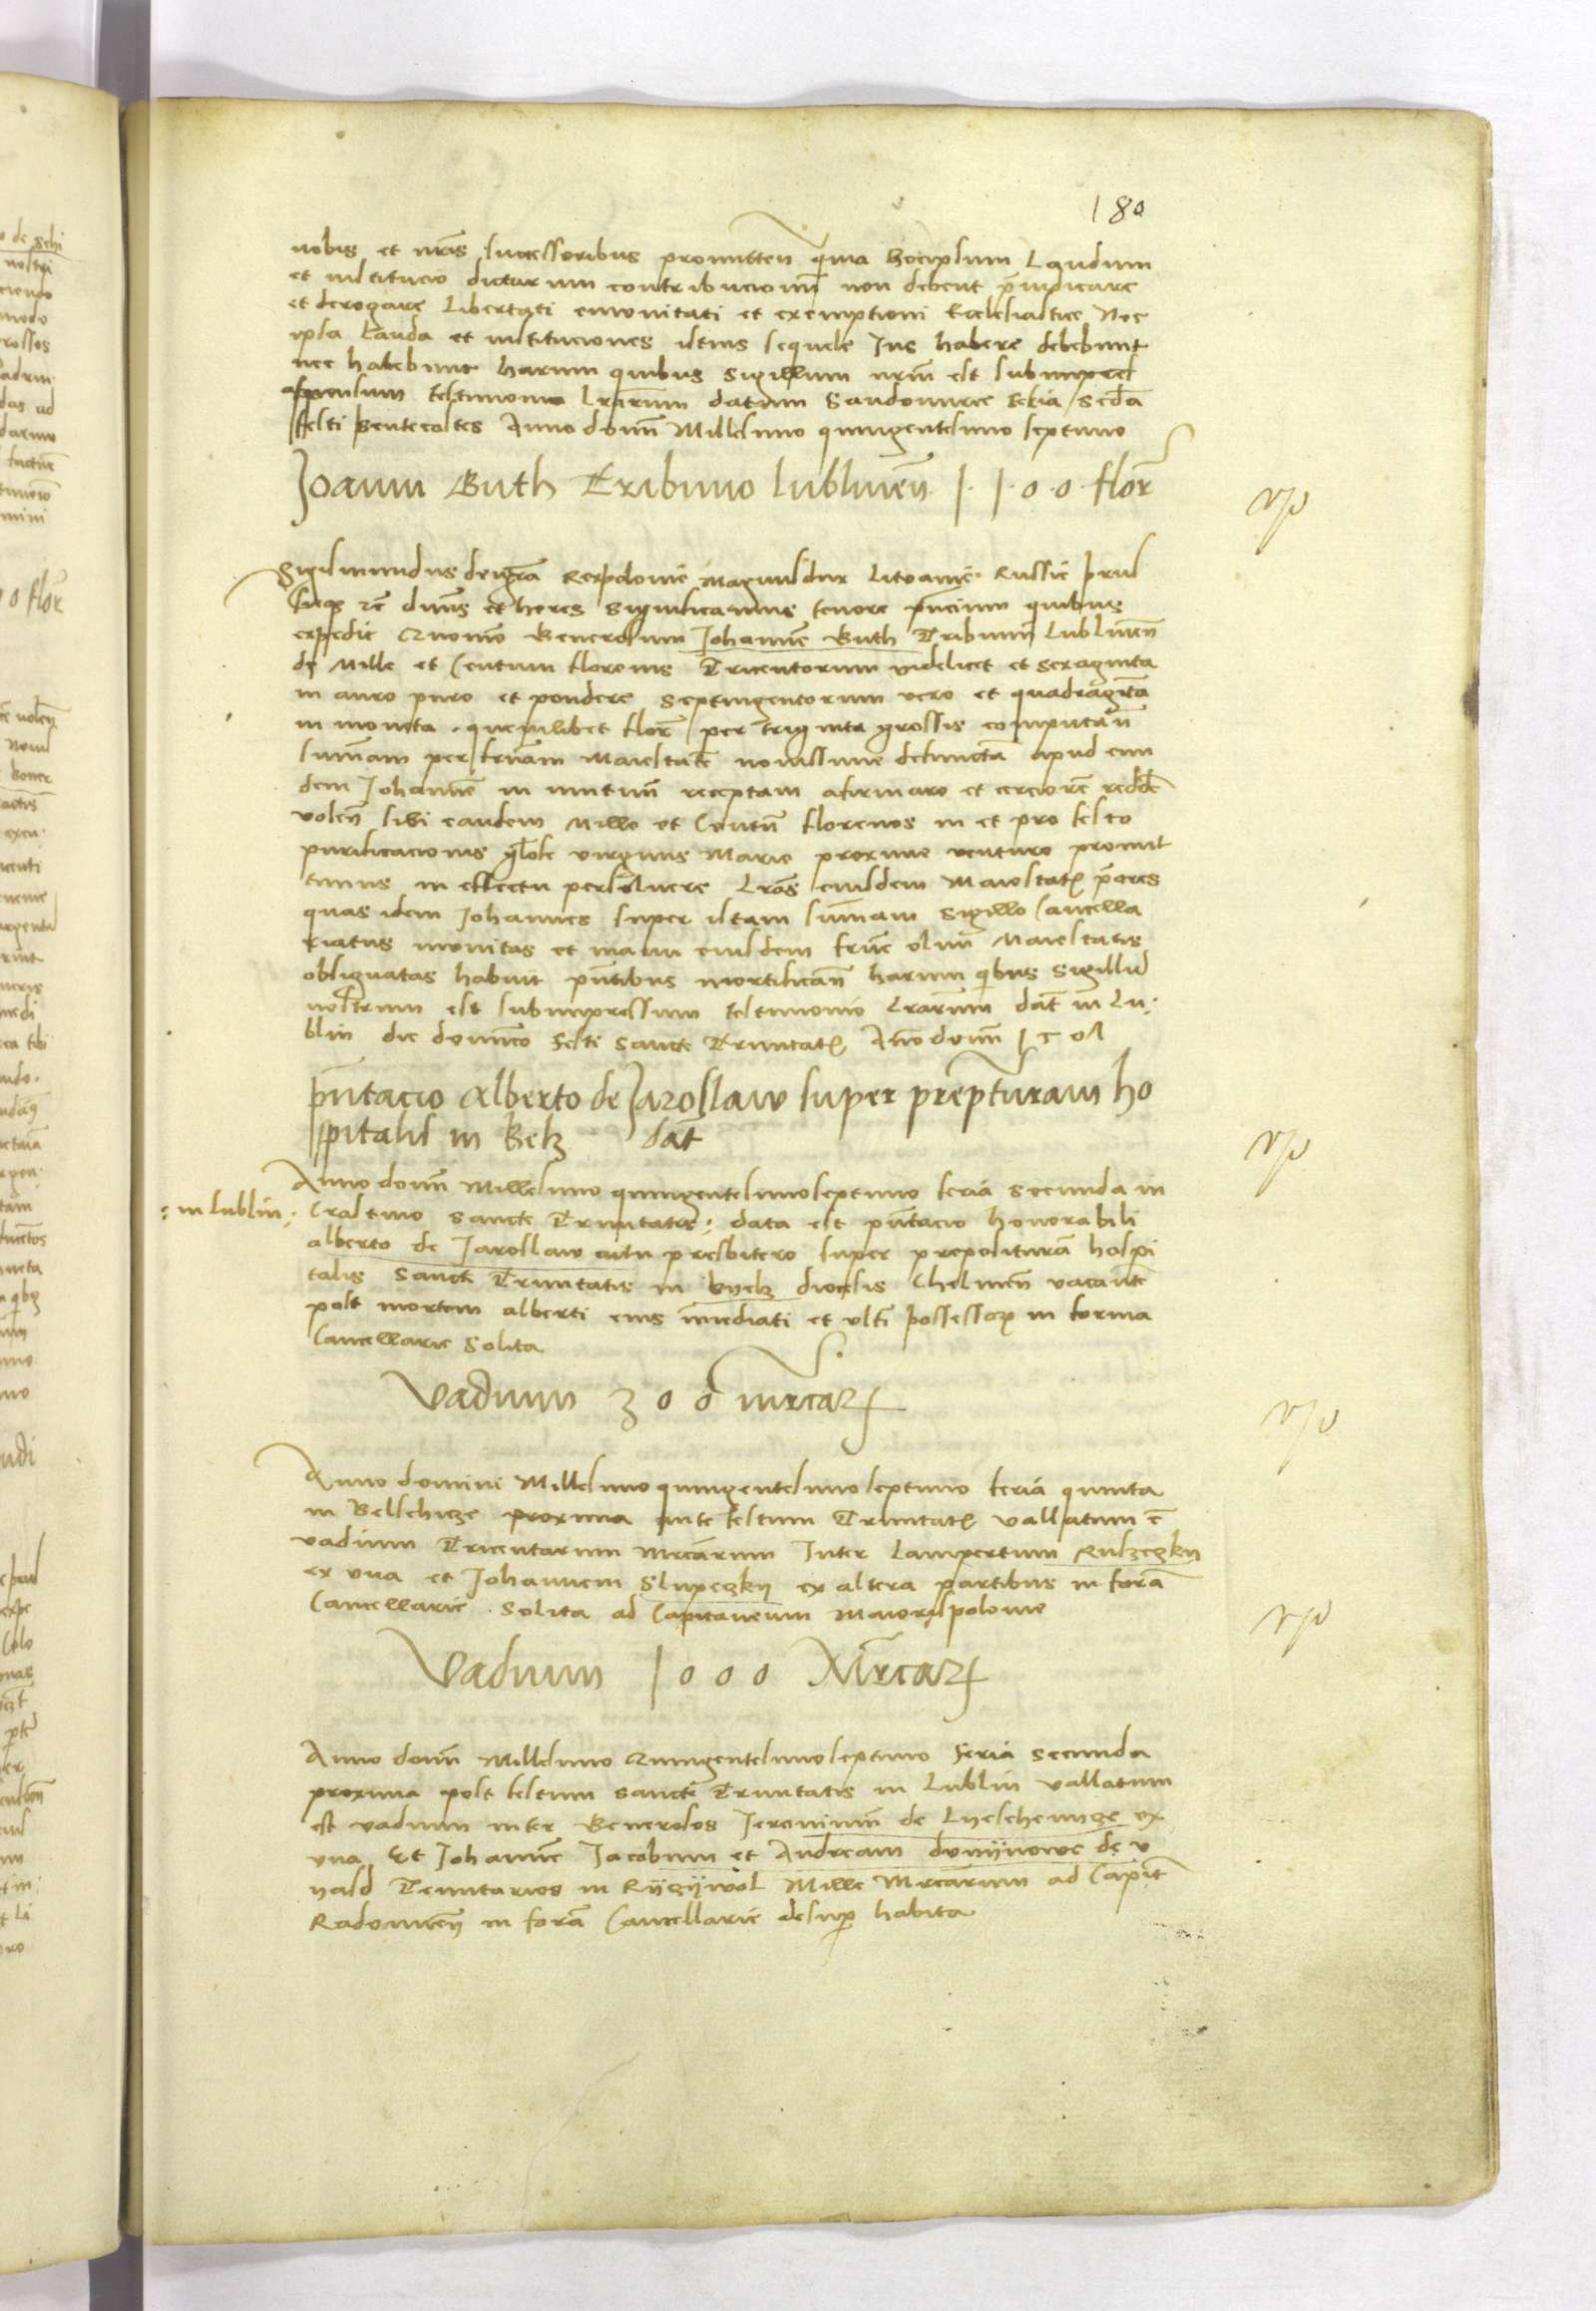 180
nobis et nr̃is successoribus promitten̄ quia hocipsum Laudum
et institucio dictarum contribucionū non debent p̄iudicare
et derogare Libertati emonitati et exemptioni Ecclesiastice Nec
ipsa Lauda et instituciones istius sequele Jus habere debebunt
nec habebunt harum quibus Sigillum nr̃m est subimpres
appensum testimonio Lr̃arum datum Sandomirie feria secd̃a
festi pentecostes Anno domī Millesimo quingentesimo septimo
Joanni Buth Tribuno lublinen̄ 1·1·0·0· flor̄
Sigismundus dei gr̃a Rex polonie Magnus dux Litvanie Russie prus
sieq3 ac̄ dn̄us et heres Significamus tenore p̄ncium quibus
expedit Quomō Generosum Johannē Buth Tribunū Lublinen̄
de Mille et Centum florenis Tricentorum videlicet et sexaginta
in auro puro et pondere Septingentorum vero et quadragīta
in moneta quemlibet flor̄ per triginta grossis computan̄
sum̄am per fr̃nam Maiestatē novissime defunctā apud eun
dem Johannē in mutuū receptam afirmare et cerciorē redde
volen̄ sibi eandem Mille et Centū florenos in et pro festo
purificacionis gl̃ose virginis Marie proxime venturo promit
timus in effectu persolvere Lr̃as eiusdem Maiestat3 p̄ores
quas idem Johannes super istam sum̄am Sigillo Cancella
riatus monitas et manu eiusdem fr̃nē olim Maiestatis
obsignatas habuit pn̄tibus mortifican̄ harum q̄bus Sigillū
nostrum est subimpressum testimonio Lr̃arum dat̄ in Lu:
blin die dominico festi sancte Trinitat3 Ān̄o domī 1507
pn̄tacio Alberto de Jaroslaw super prep̄turam ho
spitalis in Belz dat̄
Anno domī Millesimo quingentesimoseptimo feria secunda in
: in lublin : Crastino sancte Trinitatis : data est pn̄tacio honorabili
alberto de Jaroslaw artiū presbitero super preposituram hospi
talis sancte Trinitatis in byelz diocesis Chelmen̄ vacantē
post mortem alberti eius im̄ediati et ultī possessor3 in forma
Cancellarie Solita
Vadium 300 mrcar3
Anno domini Millesimo quingentesimoseptimo feria quinta
in Belschicze proxima ante festum Trinitat3 vallatum ē
vadium Tricentarum mrcarum Inter Lampertum Ruszeczky
ex una et Johannem Slupeczky ex altera partibus in for̄a
Cancellarie Solita ad Capitaneum Maioris polonie
Vadium 1000 Mrcar3
Anno domī Millesimo Quingentesimoseptimo feria secunda
proxima post festum sancte Trinitatis in Lublin vallatum
est vadium inter Generosos Jeronimū de Lyeschenycze ex
una Et Johannē Jacobum et Andream donynowe de v
yasd Tenutarios in Ryczywol Mille Mrcarum ad Capit̄
Radomien̄ in for̄a Cancellarie desup̄ habita